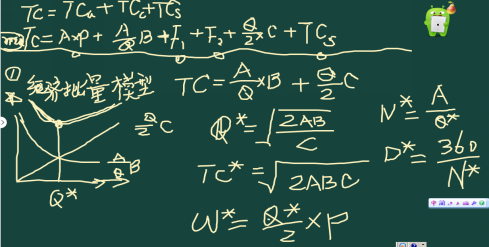 TC = TCa + TCc + TCs
TC = A×P + A/Q B + F₁ + F₂ + Q/2 × C + TCs
① 经济批量模型
TC = A/Q × B + Q/2 C
Q/2 C
A/Q B
Q*
Q* = √(2AB/C)
TC* = √(2ABC)
W* = Q*/2 × P
N* = A/Q*
D* = 360/N*